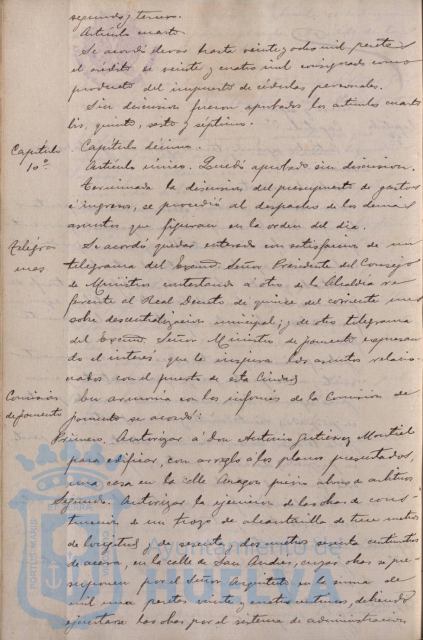 segundo y tercero.
Artículo cuarto.
Se acordó elevar hasta veinte y ocho mil pesetas
el crédito de veinte y cuatro mil consignado como
producto del impuesto de cédulas personales.
Sin discusion fueron aprobados los artículos cuarto
bis, quinto, sesto y séptimo.
Capítulo 10º
Capítulo décimo.
Artículo único. Quedó aprobado sin discusion.
Terminada la discusion del presupuesto de gastos
é ingresos, se procedió al despacho de los demás
asuntos que figuran en la orden del dia.
Telégramas
Se acordó quedar enterado con satisfaccion de un
telegrama del Excmo. Señor Presidente del Consejo
de Ministros contestando á otro de la Alcaldia re
ferente al Real Decreto de quince del corriente mes
sobre descentralizacion municipal; y de otro telegrama
del Excmo. Señor Ministro de Fomento expresan
do el interés que le inspira los asuntos relacio-
nados con el puerto de esta Ciudad.
Comision de fomento
En armonia con los informes de la Comision de
fomento se acordó:
Primero. Autorizar a don Antonio Gutierrez Montiel
para edificar, con arreglo á los planos presentados,
una casa en la calle Aragon previo abono de arbitrios
Segundo. Autorizar la ejecucion de las obras de cons-
truccion de un trozo de alcantarilla de trece metros
de longitud y de sesenta y dos metros sesenta centímetros
de acera, en la calle de San Andres, cuyas obras se pre-
suponen por el Señor Arquitecto en la suma de
mil una pesetas veinte y cuatro céntimos, debiendo
ejecutarse las obras por el sistema de administracion
Ayuntamiento de
HUELVA
PORTUS MARIS